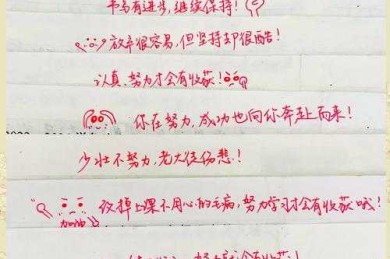 书写有进步,继续保持!
放弃很容易,但坚持却很酷!
认真、努力才会有收获!
你在努力,成功也向你奔赴而来!
少壮不努力,老大徒伤悲!
改掉上课不用心的毛病,努力学习才会有收获哦!
加油
努力就会有收获!